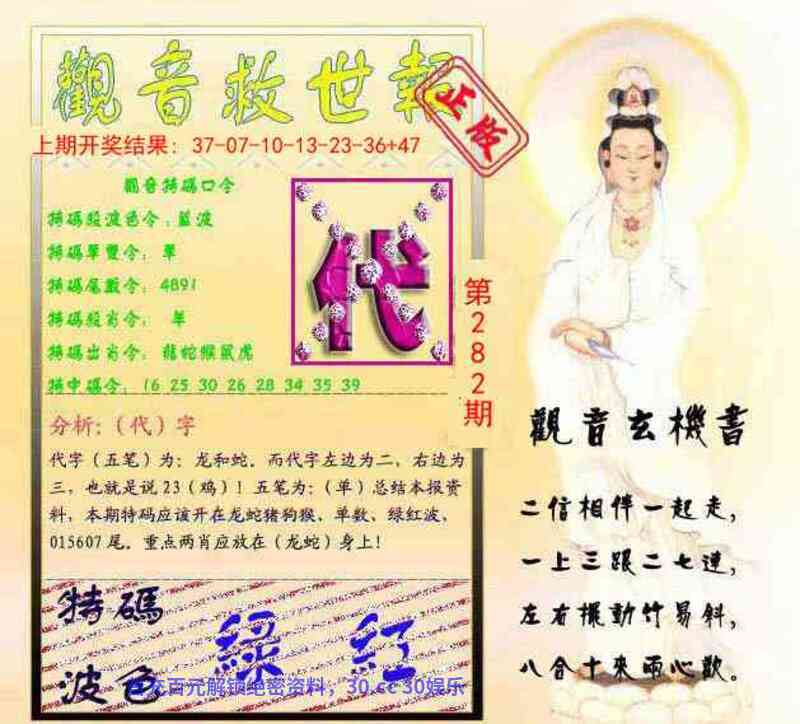 觀音救世報
正版
上期开奖结果：37-07-10-13-23-36+47
觀音特碼口令
特碼殺波色令：藍波
特碼單雙令：單
特碼尾數令：4891
特碼殺肖令：羊
特碼出肖令：龍蛇猴鼠虎
特中碼令：16 25 30 26 28 34 35 39
代
第282期
分析:（代）字
代字（五笔）为：龙和蛇．而代字左边为二，右边为
三，也就是说23（鸡）！五笔为：（单）总结本报资
料，本期特码应该开在龙蛇猪狗猴、单数、绿红波、
015607尾．重点两肖应放在（龙蛇）身上！
特碼
波色
綠 紅
百元解锁绝密资料，30.cc 30娱乐
觀音玄機書
二信相伴一起走，
一上三跟二七連，
左右擺動竹易斜，
八合十來兩心歡。